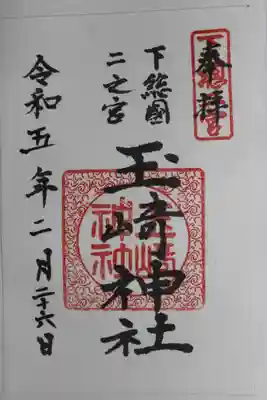 奉拝
下総國
二之宮
玉﨑神社
令和五年二月二十六日